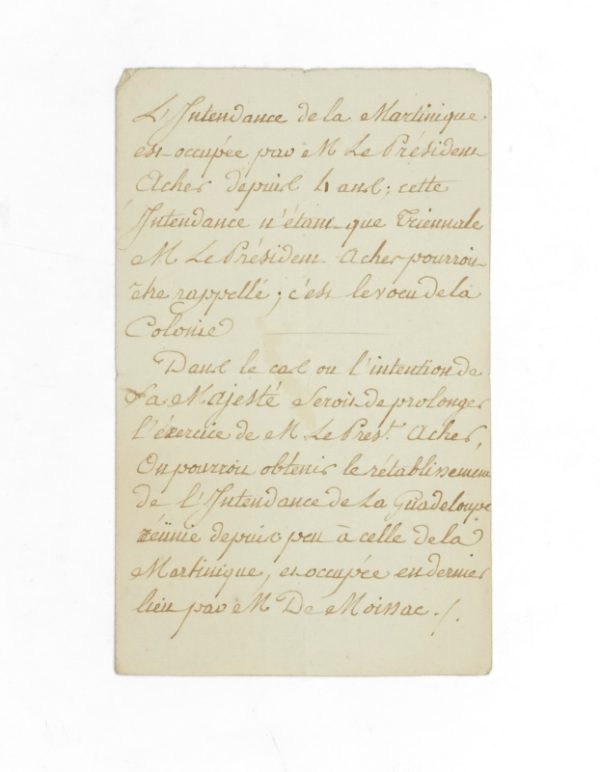 L'Intendance de la Martinique
est occupée par M Le Président
Acher depuis 4 ans ; cette
Intendance n'étant que Triennale
M Le Président Acher pourroit
être rappellé ; c'est le voeu de la
Colonie
Dans le cas ou l'intention de
Sa Majesté seroit de prolonger
l'éxercice de M Le Prest. Acher,
On pourroit obtenir le rétablissement
de l'Intendance de La Guadeloupe
réünie depuis peu à celle de la
Martinique, et occupée en dernier
lieu par M De Moissac ./.